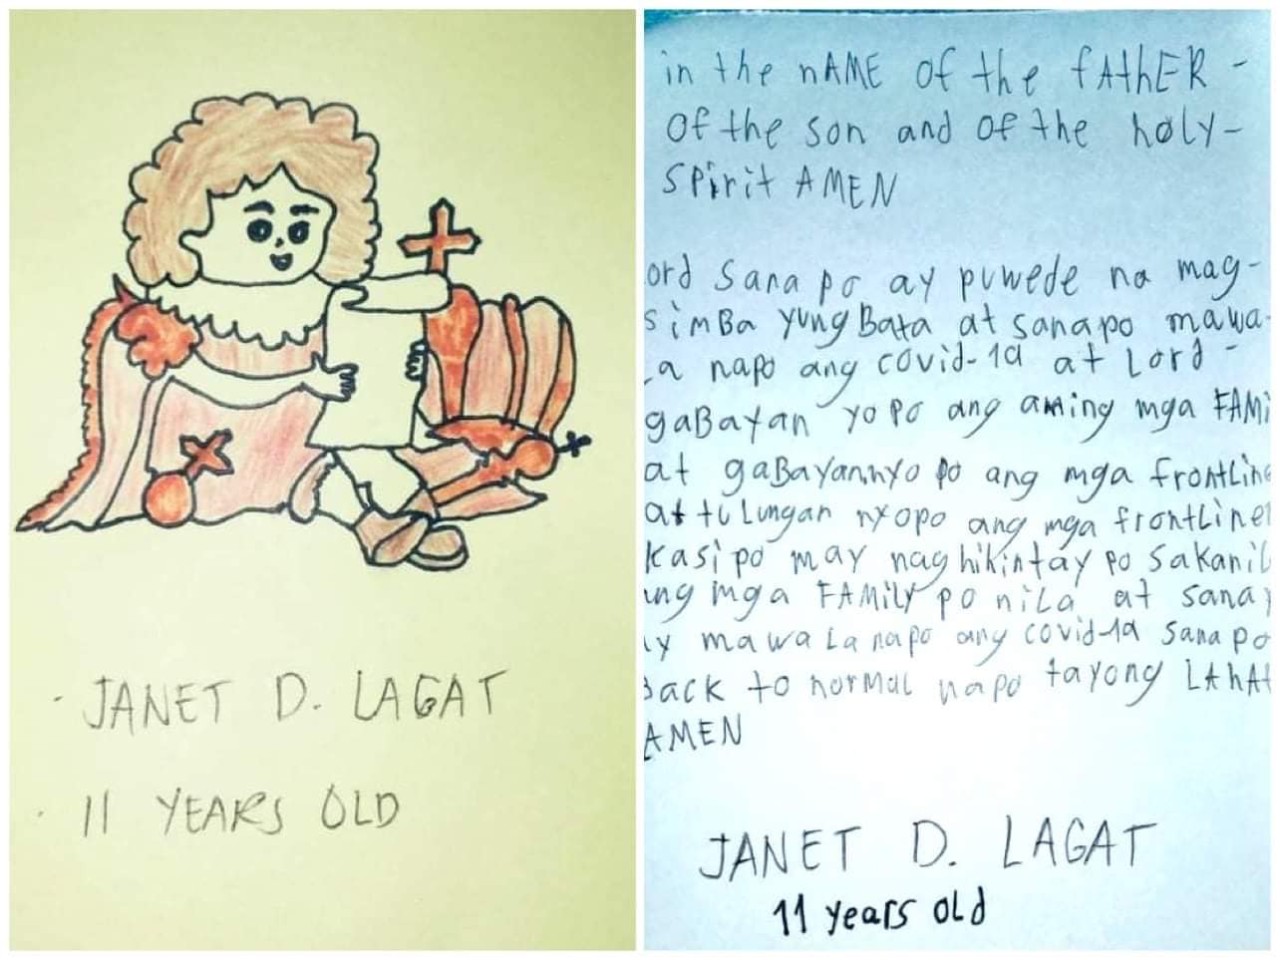 JANET D. LAGAT
11 YEARS OLD
in the nAME of the fAthER -
Of the son and of the holy-
Spirit AMEN
ord Sana po ay puwede na mag-
simBa yung Bata at sana po mawa-
a napo ang covid-19 at Lord -
gaBayan yo po ang aming mga FAMi
at gaBayannyo po ang mga frontline
at tulungan nyopo ang mga frontliner
kasi po may naghihintay po sakanil
ng mga FAMiLY po niLa at sana
y mawaLa napo ang covid-19 sana po
back to normal napo tayong LAhAt
AMEN
JANET D. LAGAT
11 years old